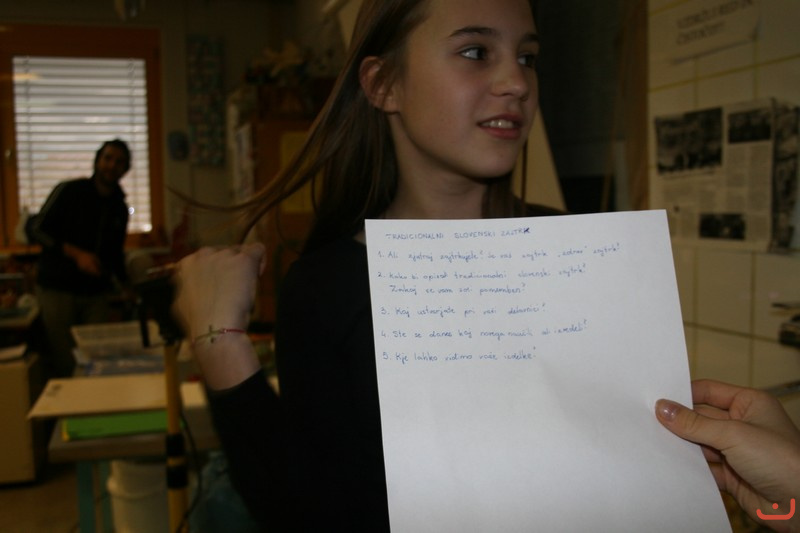 TRADICIONALNI SLOVENSKI ZAJTRK
1. Ali zjutraj zajtrkujete? Je vaš zajtrk „zdrav" zajtrk?
2. Kako bi opisali tradicionalni slovenski zajtrk?
Zakaj se vam zdi pomemben?
3. Kaj ustvarjate pri vaši delavnici?
4. Ste se danes kaj novega naučili ali izvedeli?
5. Kje lahko vidimo vaše izdelke?